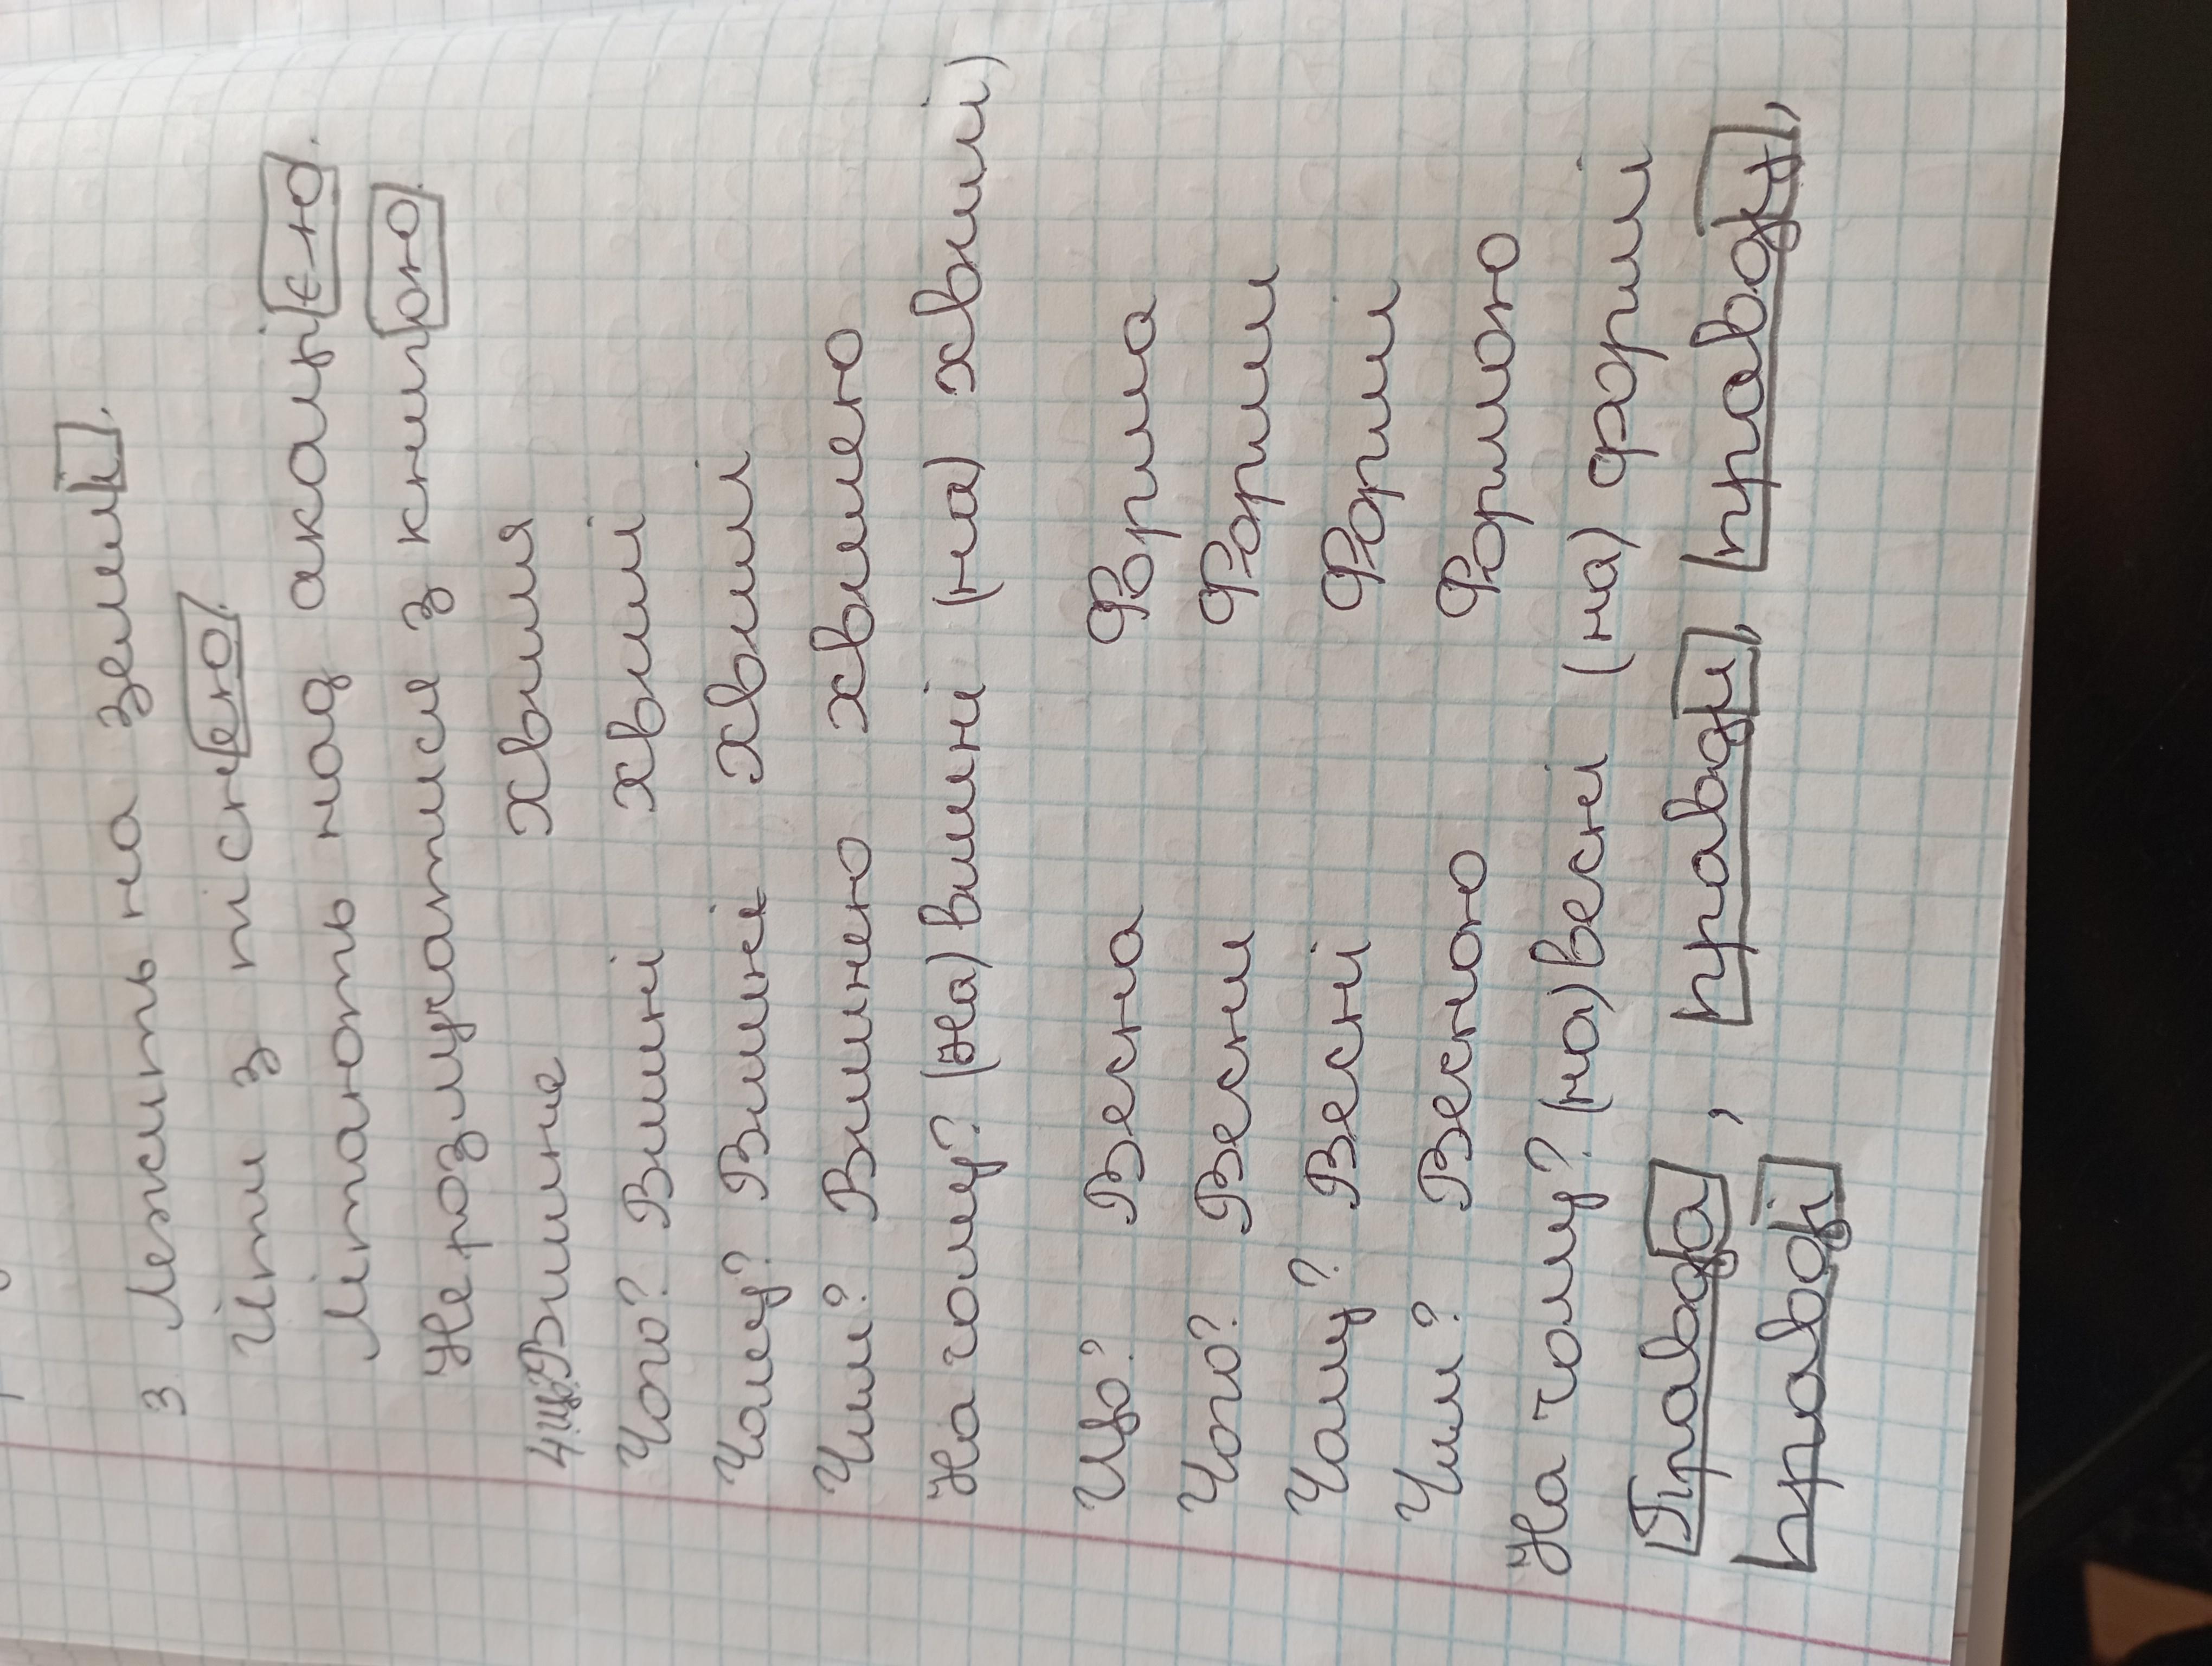 3 Лежить на землі.
Йти з піснею.
Літають над акацією.
Не розлучатися з книгою.
4. Що? Вишне Хвиля
Чого? Вишні хвилі
Чому? Вишні Хвилі
Чим? Вишнею хвилею
На чому? (на) вишні (на) хвилі)
Що? Весна Форма
Чого? Весни Форми
Чому? Весні Форми
Чим? Весною Формою
На чому? (на) весні (на) формі
Правда, правди, правду,
правді